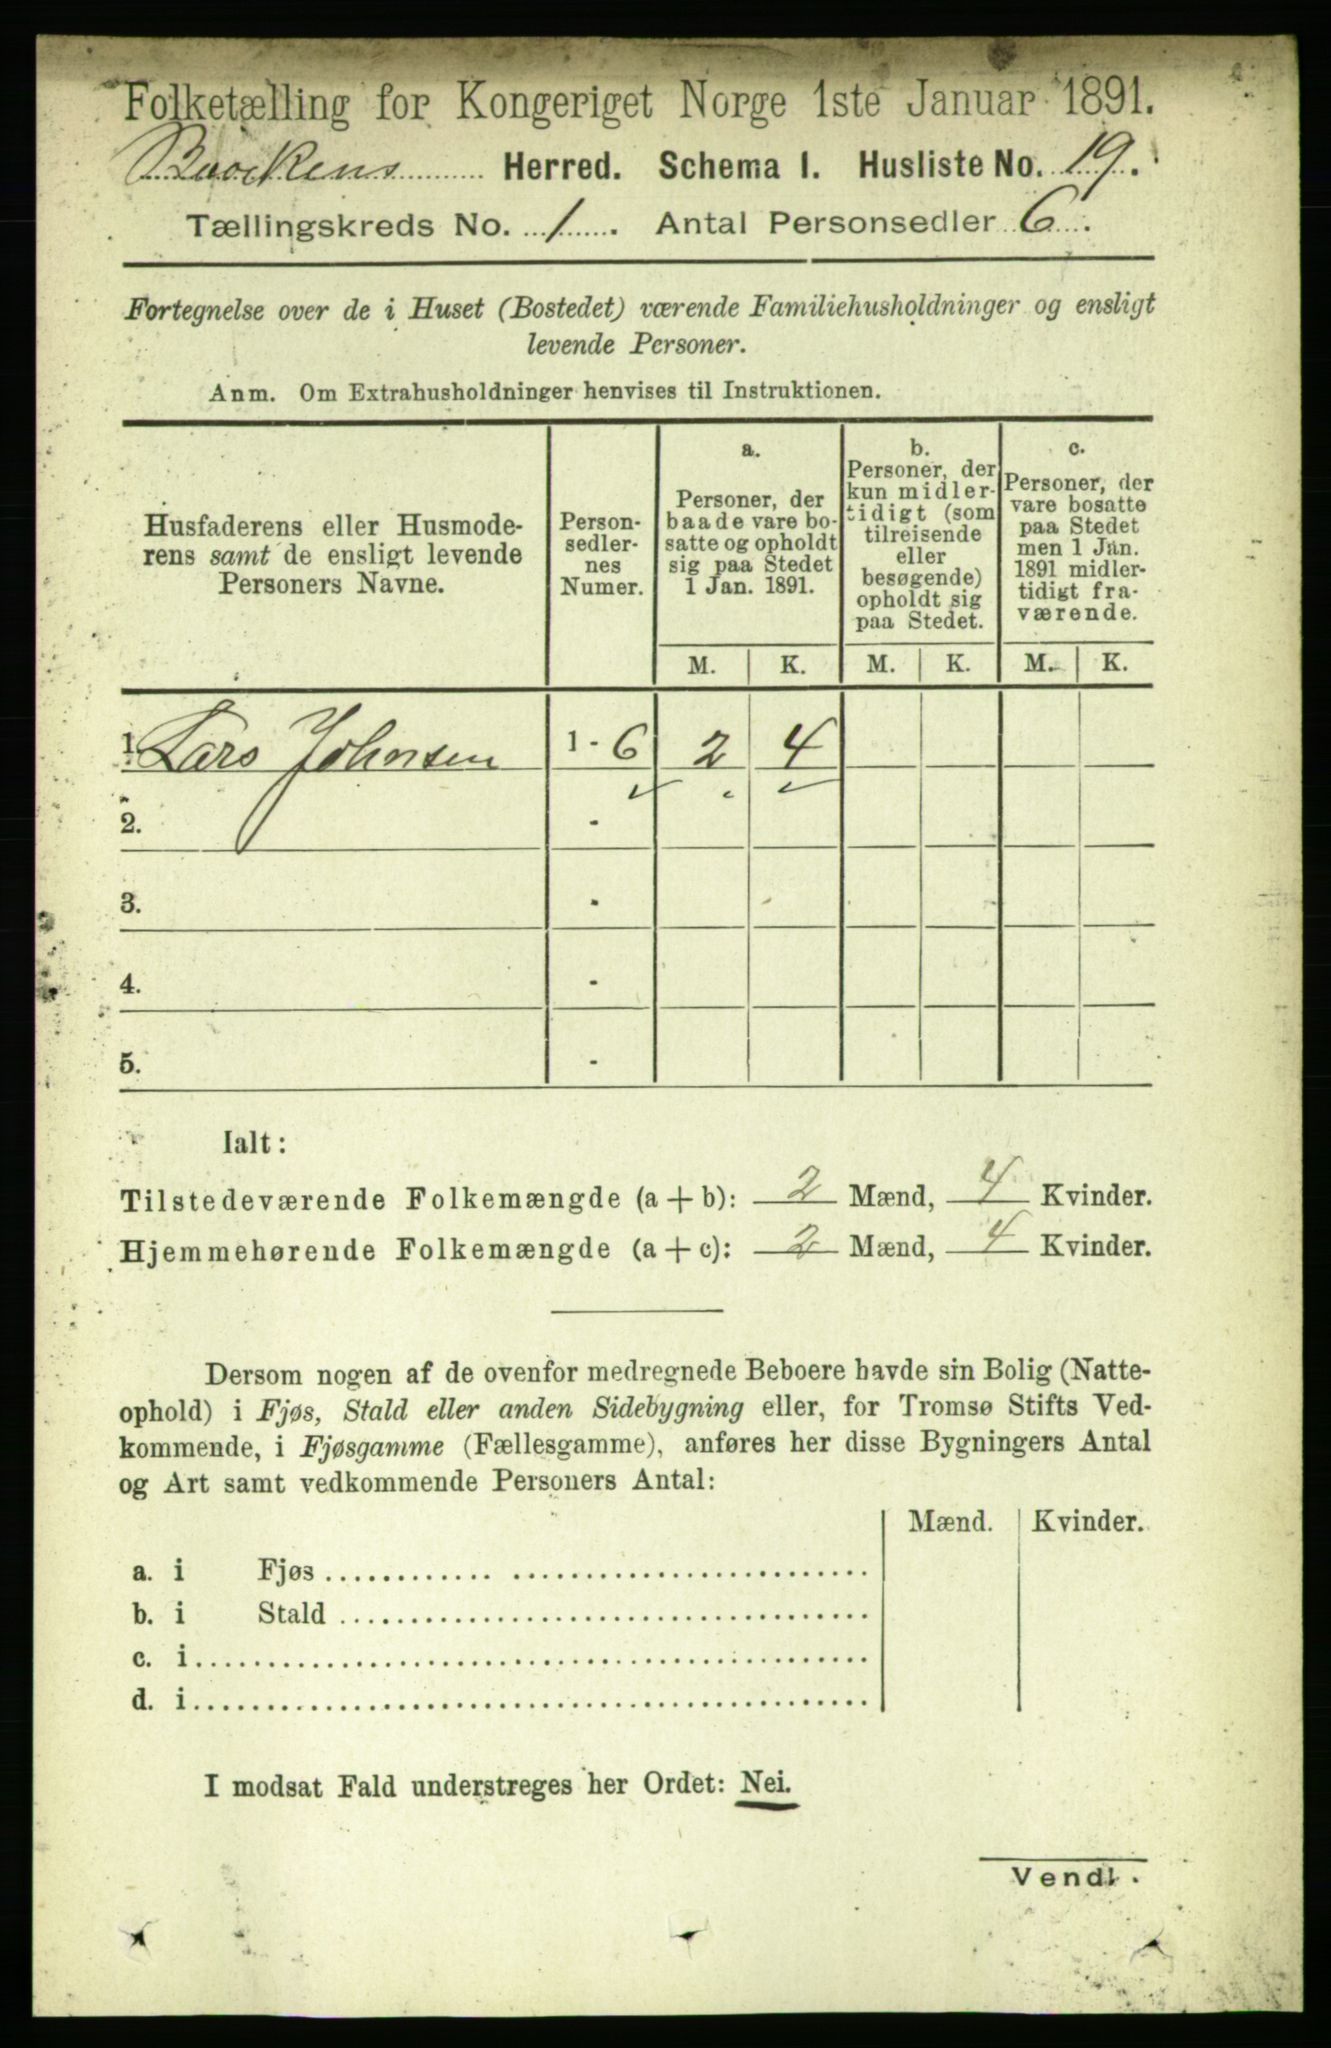 Folketælling for Kongeriget Norge 1ste Januar 1891.
Herred. Schema 1. Husliste No. 19.
Tællingskreds No. 1. Antal Personsedler 6.
Fortegnelse over de i Huset (Bostedet) værende Familiehusholdninger og ensligt
levende Personer.
Anm. Om Extrahusholdninger henvises til Instruktionen.
Husfaderens eller Husmode-
rens samt de ensligt levende
Personers Navne.
Person-
sedler-
nes
Numer.
a.
Personer, der
baade vare bo-
satte og opholdt
sig paa Stedet
1 Jan. 1891.
b.
Personer, der
kun midler-
tidigt (som
tilreisende
eller
besøgende)
opholdt sig
paa Stedet.
c.
Personer, der
vare bosatte
paa Stedet
men 1 Jan.
1891 midler-
tidigt fra-
værende.
M. K. M. K. M. K.
1. Lars Johnsen 1 - 6 2 4
2. -
3. -
4. -
5. -
Ialt:
Tilstedeværende Folkemængde (a + b): 2 Mænd, 4 Kvinder.
Hjemmehørende Folkemængde (a + c): 2 Mænd, 4 Kvinder.
Dersom nogen af de ovenfor medregnede Beboere havde sin Bolig (Natte-
ophold) i Fjøs, Stald eller anden Sidebygning eller, for Tromsø Stifts Ved-
kommende, i Fjøsgamme (Fællesgamme), anføres her disse Bygningers Antal
og Art samt vedkommende Personers Antal:
Mænd. Kvinder.
a. i Fjøs
b. i Stald
c. i
d. i
I modsat Fald understreges her Ordet: Nei.
Vendt.